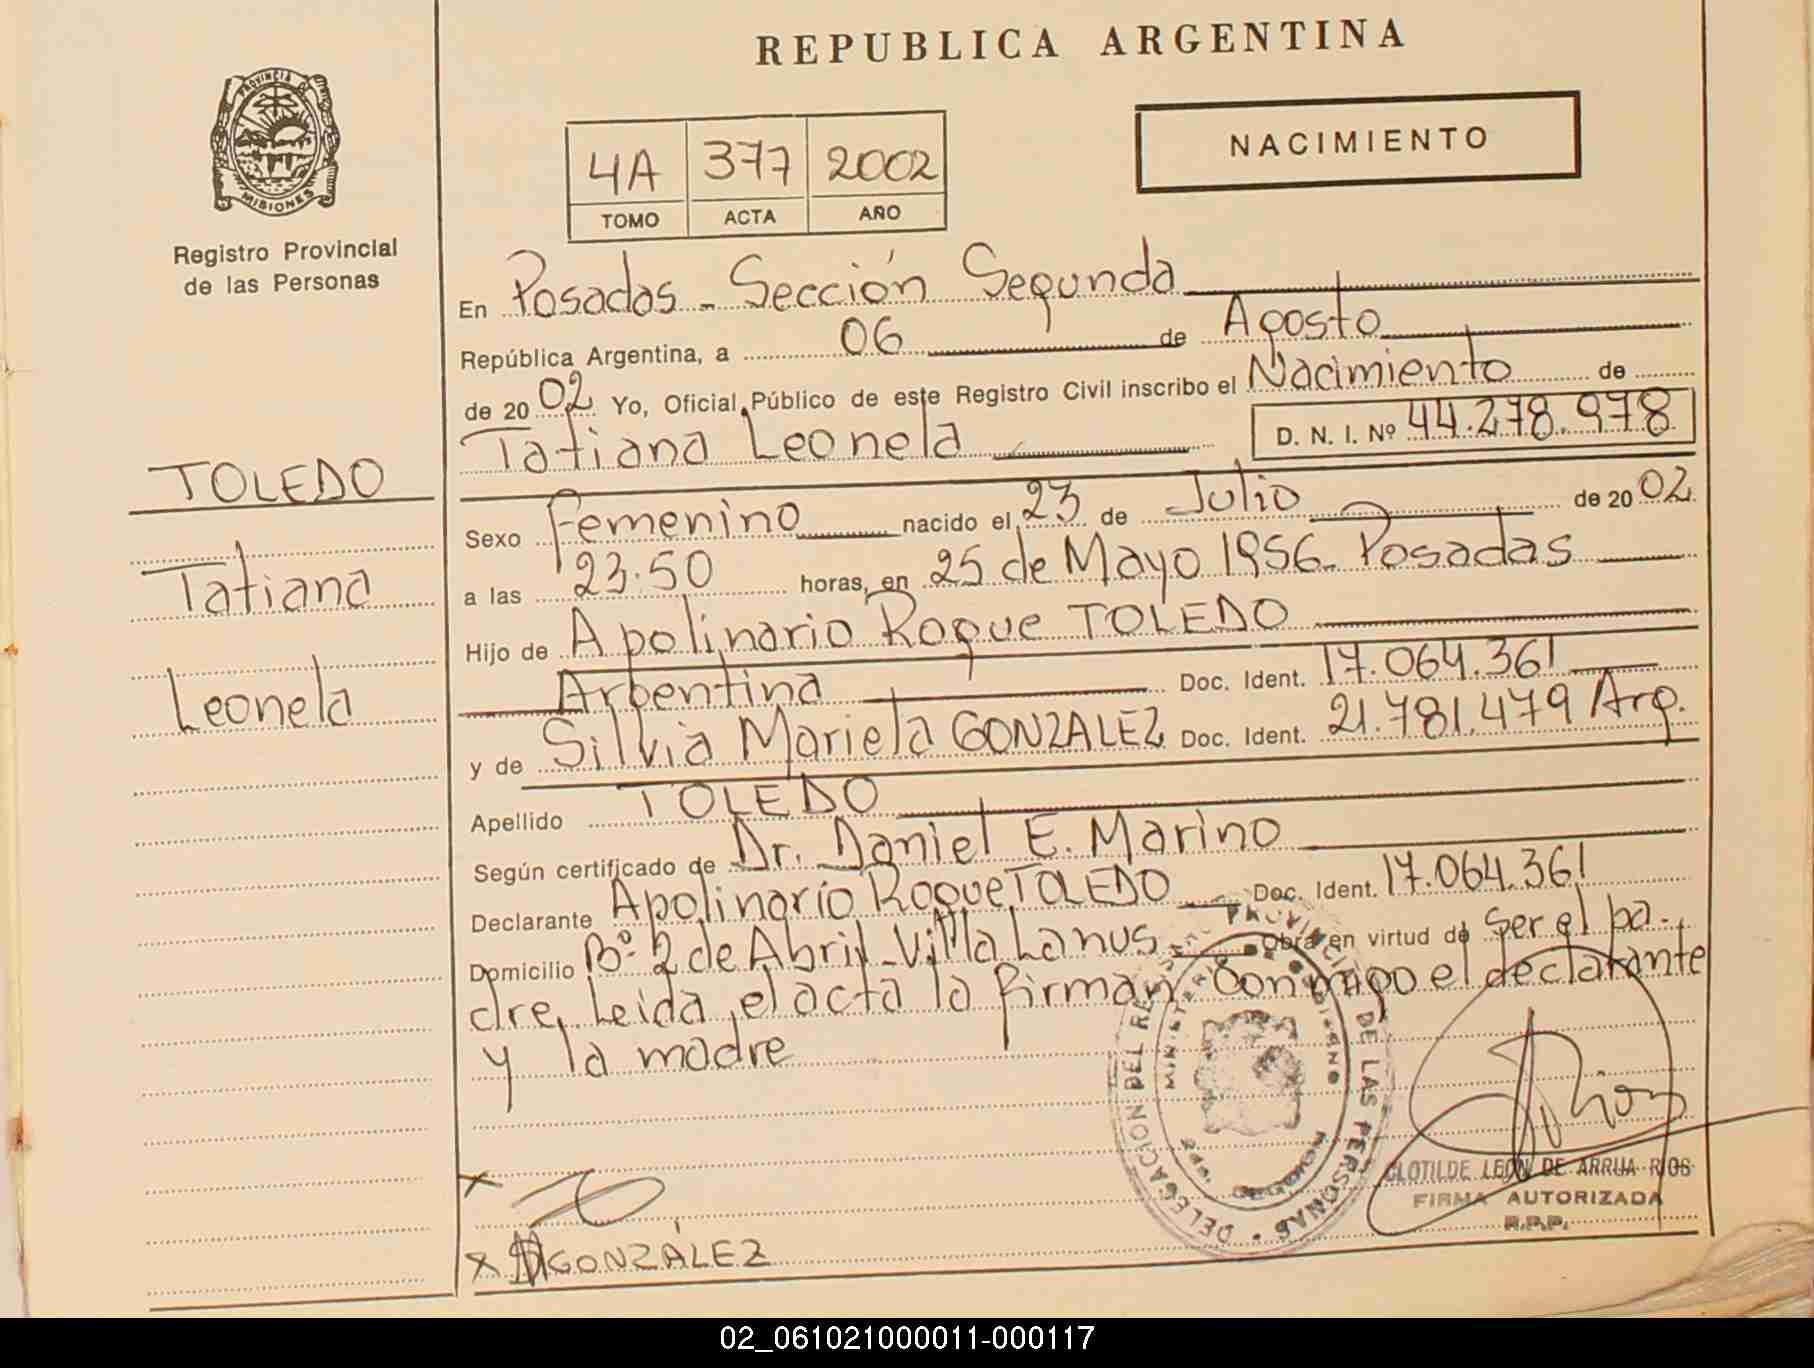 REPUBLICA ARGENTINA
PROVINCIA DE
MISIONES
Registro Provincial
de las Personas
4A 377 2002
TOMO ACTA AÑO
NACIMIENTO
TOLEDO
Tatiana
Leonela
En Posadas - Sección Segunda
República Argentina, a 06 de Agosto
de 20 02 Yo, Oficial Público de este Registro Civil inscribo el Nacimiento de
Tatiana Leonela D. N. I. Nº 44.278.978
Sexo Femenino nacido el 23 de Julio de 20 02
a las 23.50 horas, en 25 de Mayo 1956. Posadas
Hijo de Apolinario Roque TOLEDO
Argentina Doc. Ident. 17.064.361
y de Silvia Mariela GONZALEZ Doc. Ident. 21.781.479 Arg.
Apellido TOLEDO
Según certificado de Dr. Daniel E. Marino
Declarante Apolinario Roque TOLEDO Doc. Ident. 17.064.361
Domicilio Bº 2 de Abril - Villa Lanus Obra en virtud de ser el pa-
dre, Leida el acta la firman conmigo el declarante
y la madre
DELEGACION DEL REGISTRO PROVINCIAL DE LAS PERSONAS
MINISTERIO DE GOBIERNO
CLOTILDE LEON DE ARRUA RIOS
FIRMA AUTORIZADA
R.P.P.
x
x GONZÁLEZ
02_061021000011-000117